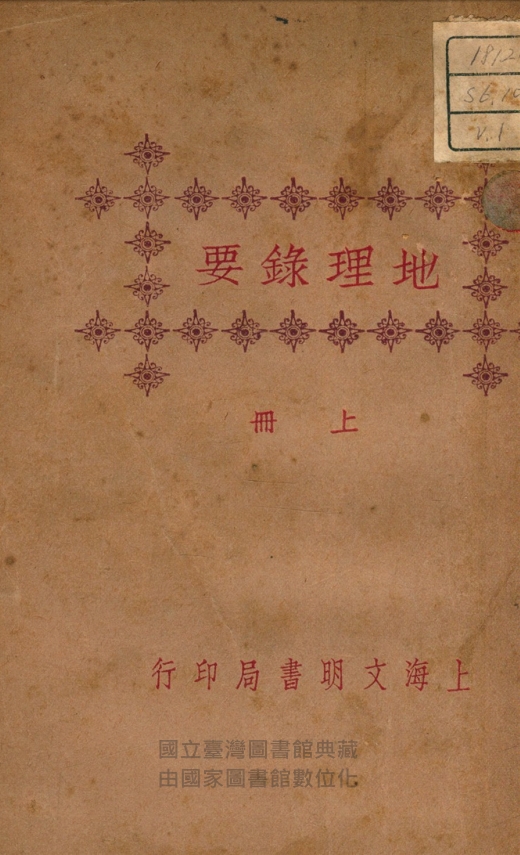 1812
v.1
地理錄要
上冊
上海文明書局印行
國立臺灣圖書館典藏
由國家圖書館數位化